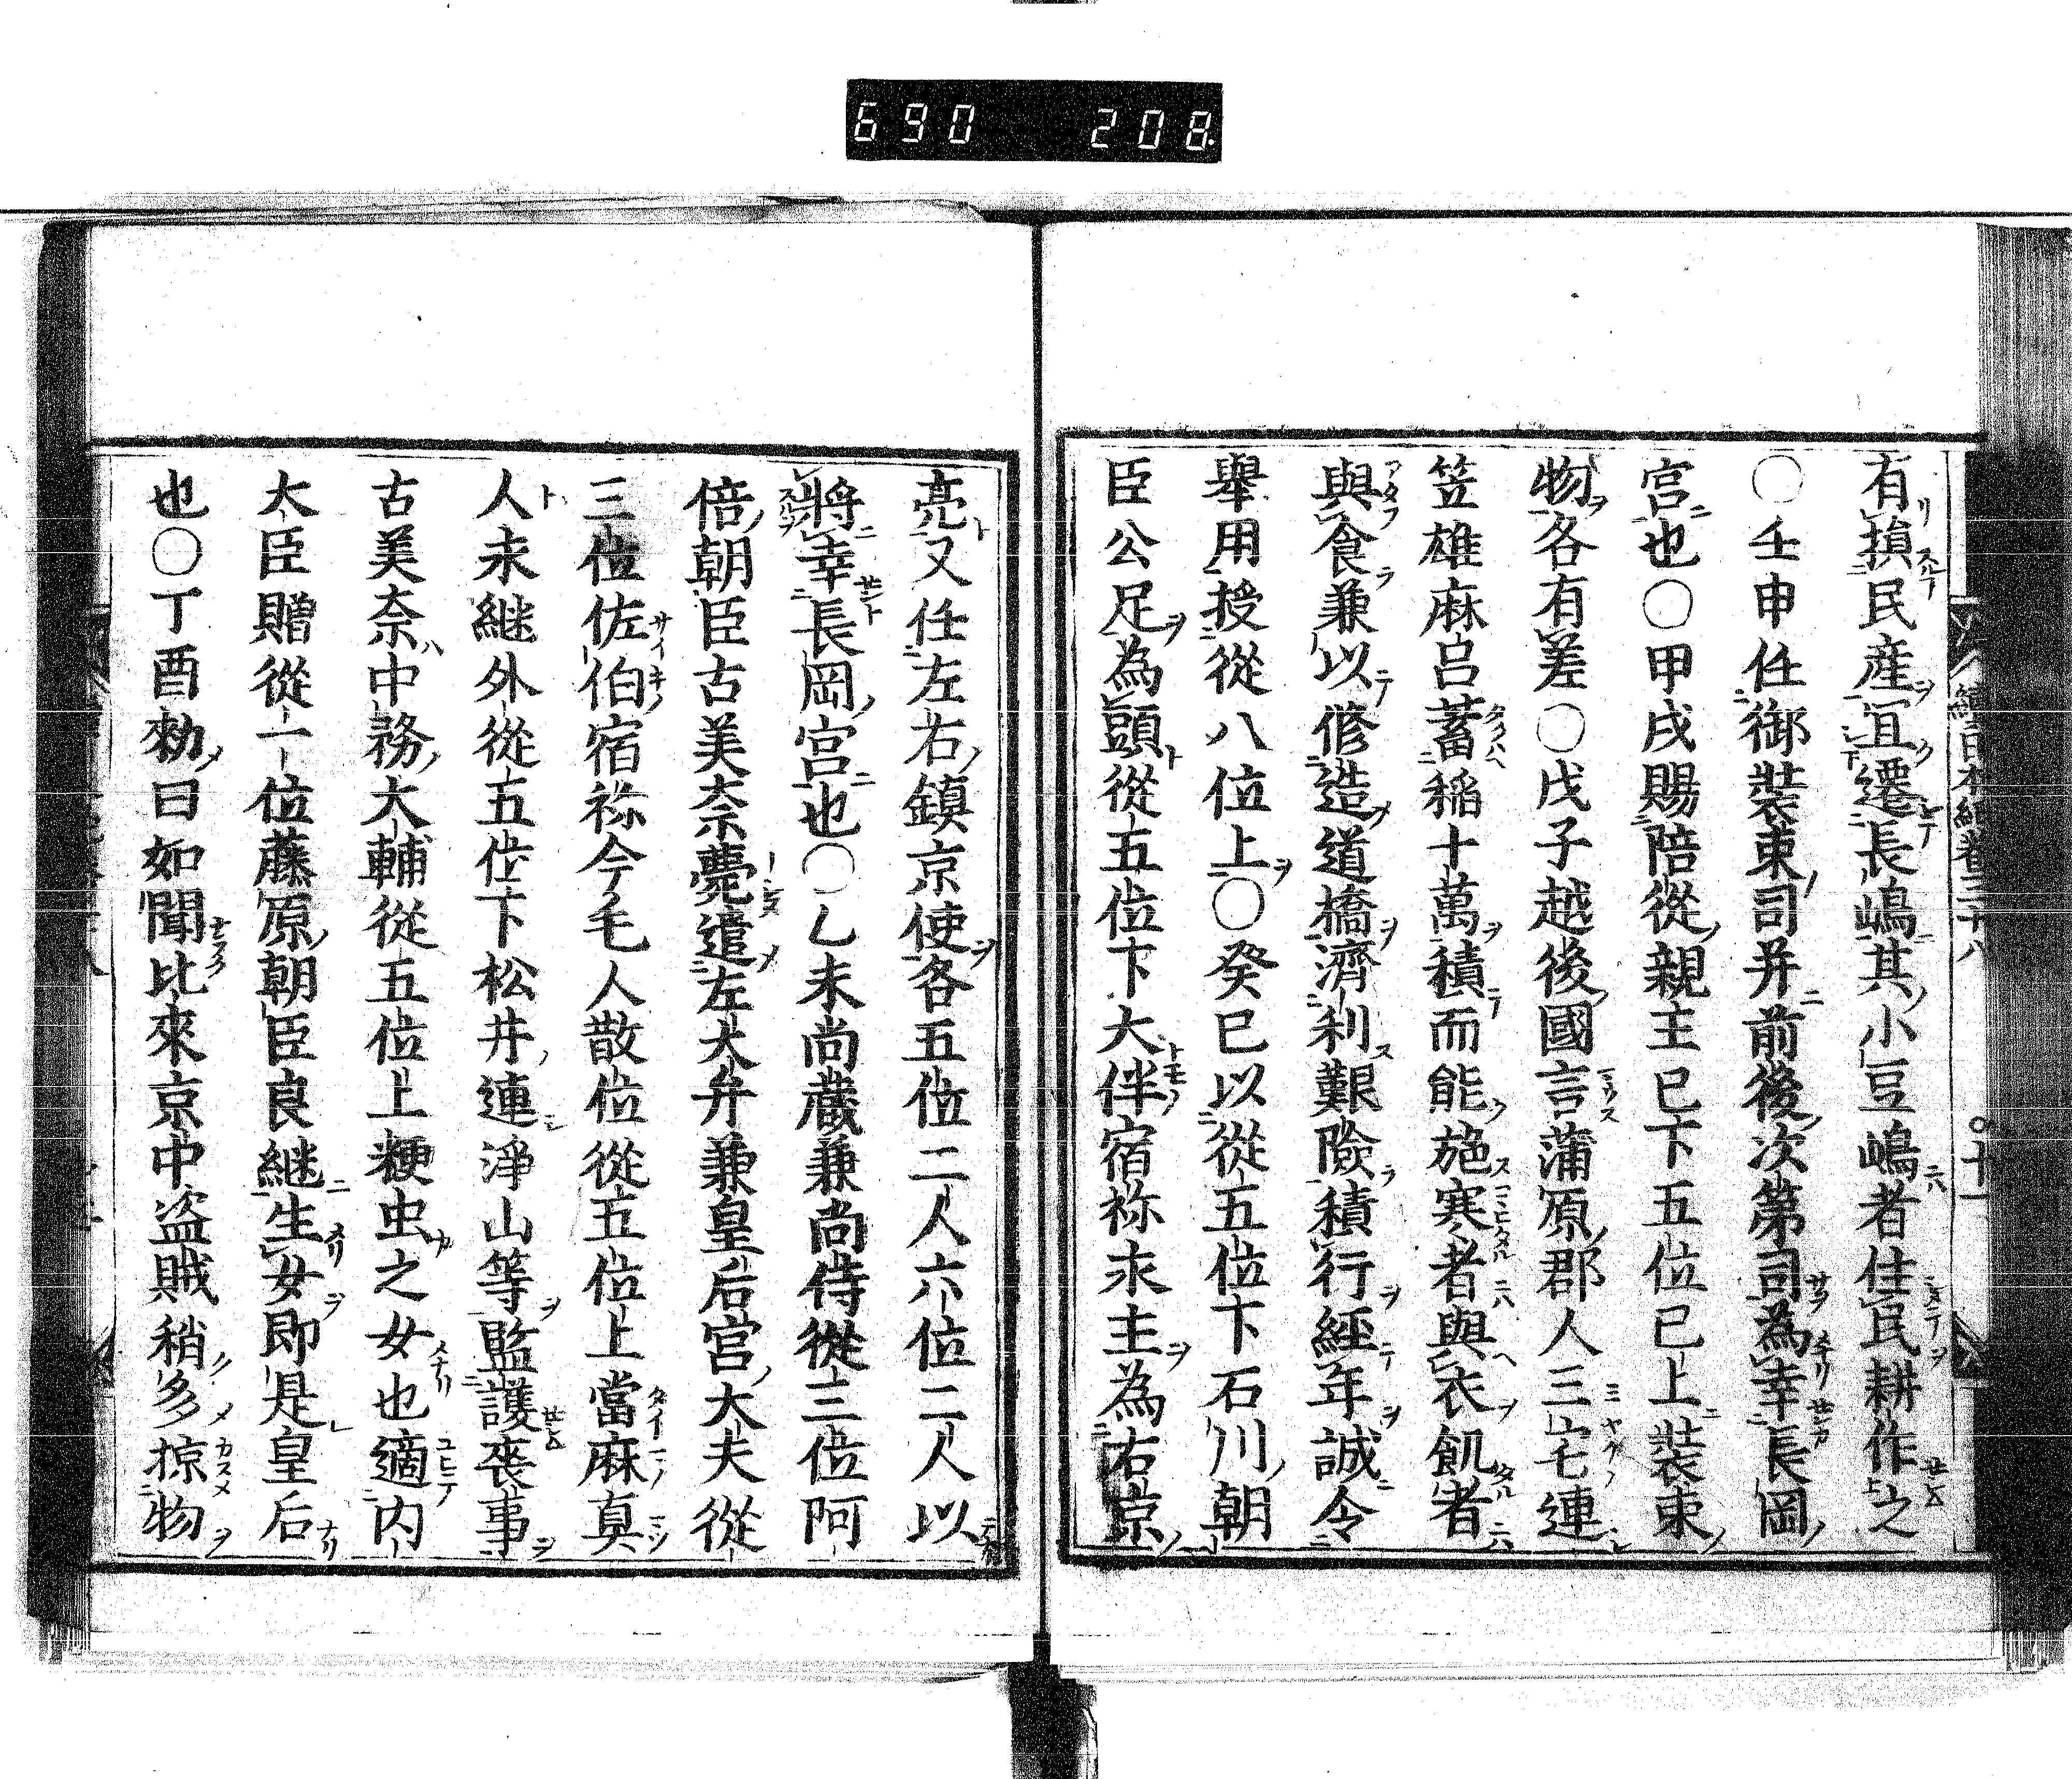 690 208
有損民産宜遷長嶋其小豆嶋者住民耕作之
〇壬申任御裝束司并前後次第司為幸長岡
宮也〇甲戌賜陪從親王已下五位已上裝束
物各有差〇戊子越後國言蒲原郡人三宅連
笠雄麻呂蓄稲十萬積而能施寒者與衣飢者
與食兼以修造道橋濟利艱險積行經年誠令
舉用授從八位上〇癸巳以從五位下石川朝
臣公足為頭從五位下大伴宿祢永主為右京
亮又任左右鎮京使各五位二人六位二人以
將幸長岡宮也〇乙未尚蔵兼尚侍從三位阿
倍朝臣古美奈薨遣左大弁兼皇后宮大夫從
三位佐伯宿祢今毛人散位從五位上當麻真
人永継外從五位下松井連淨山等監護喪事
古美奈中務大輔從五位上粳虫之女也適内
大臣贈從一位藤原朝臣良継生女即是皇后
也〇丁酉勅曰如聞比來京中盗賊稍多掠物